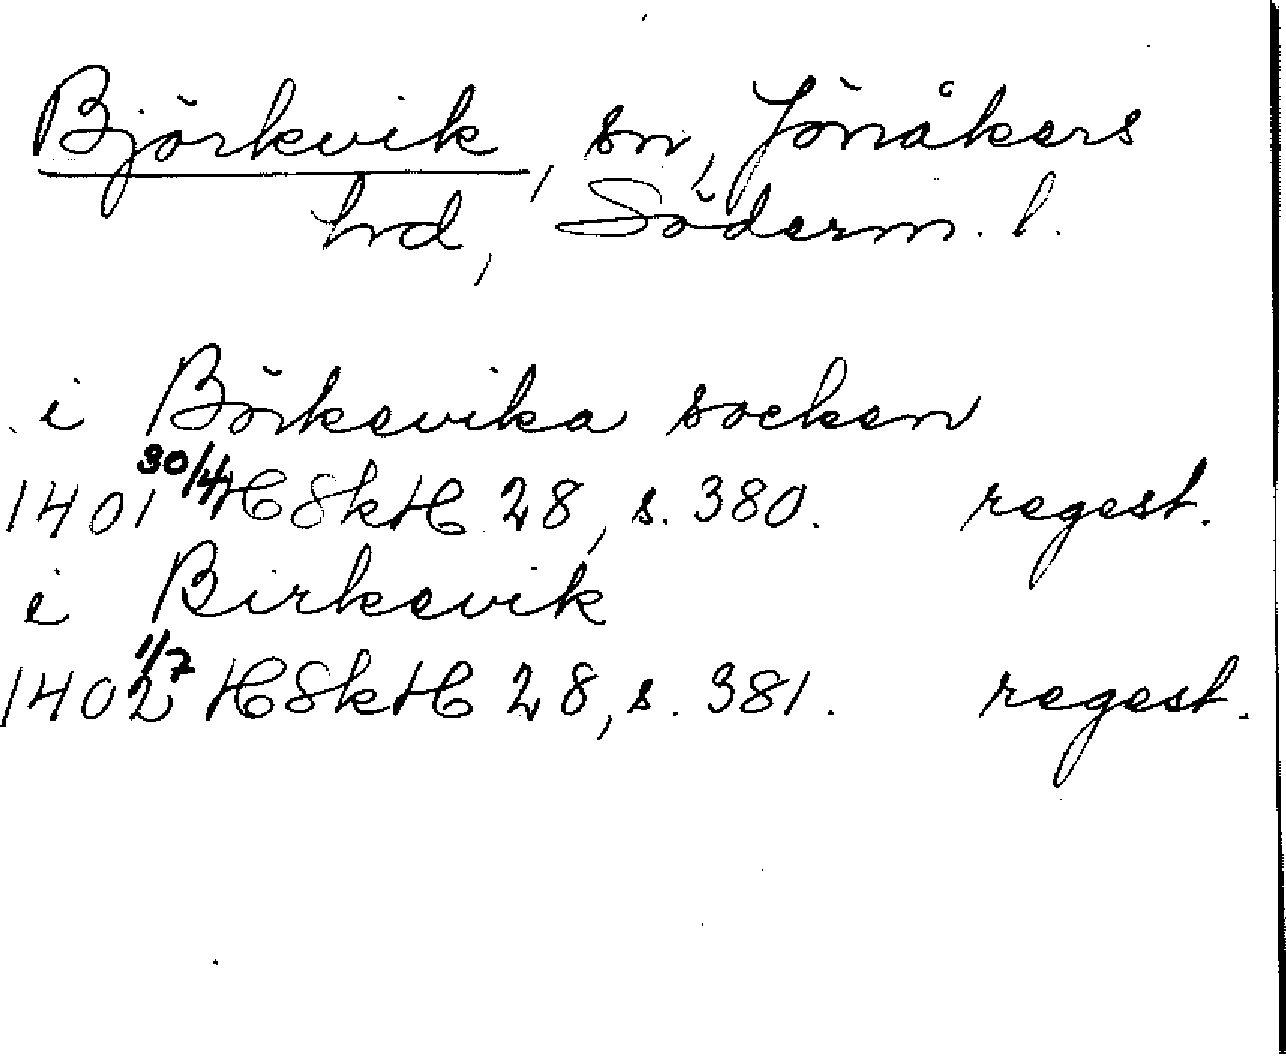 Björkvik, sn, Jönåkers
hd, Söderm. l.
i Börkevika socken
1401 30/4 HSkH 28, s. 380. regest.
i Birkevik
1402 1/7 HSkH 28, s. 381. regest.